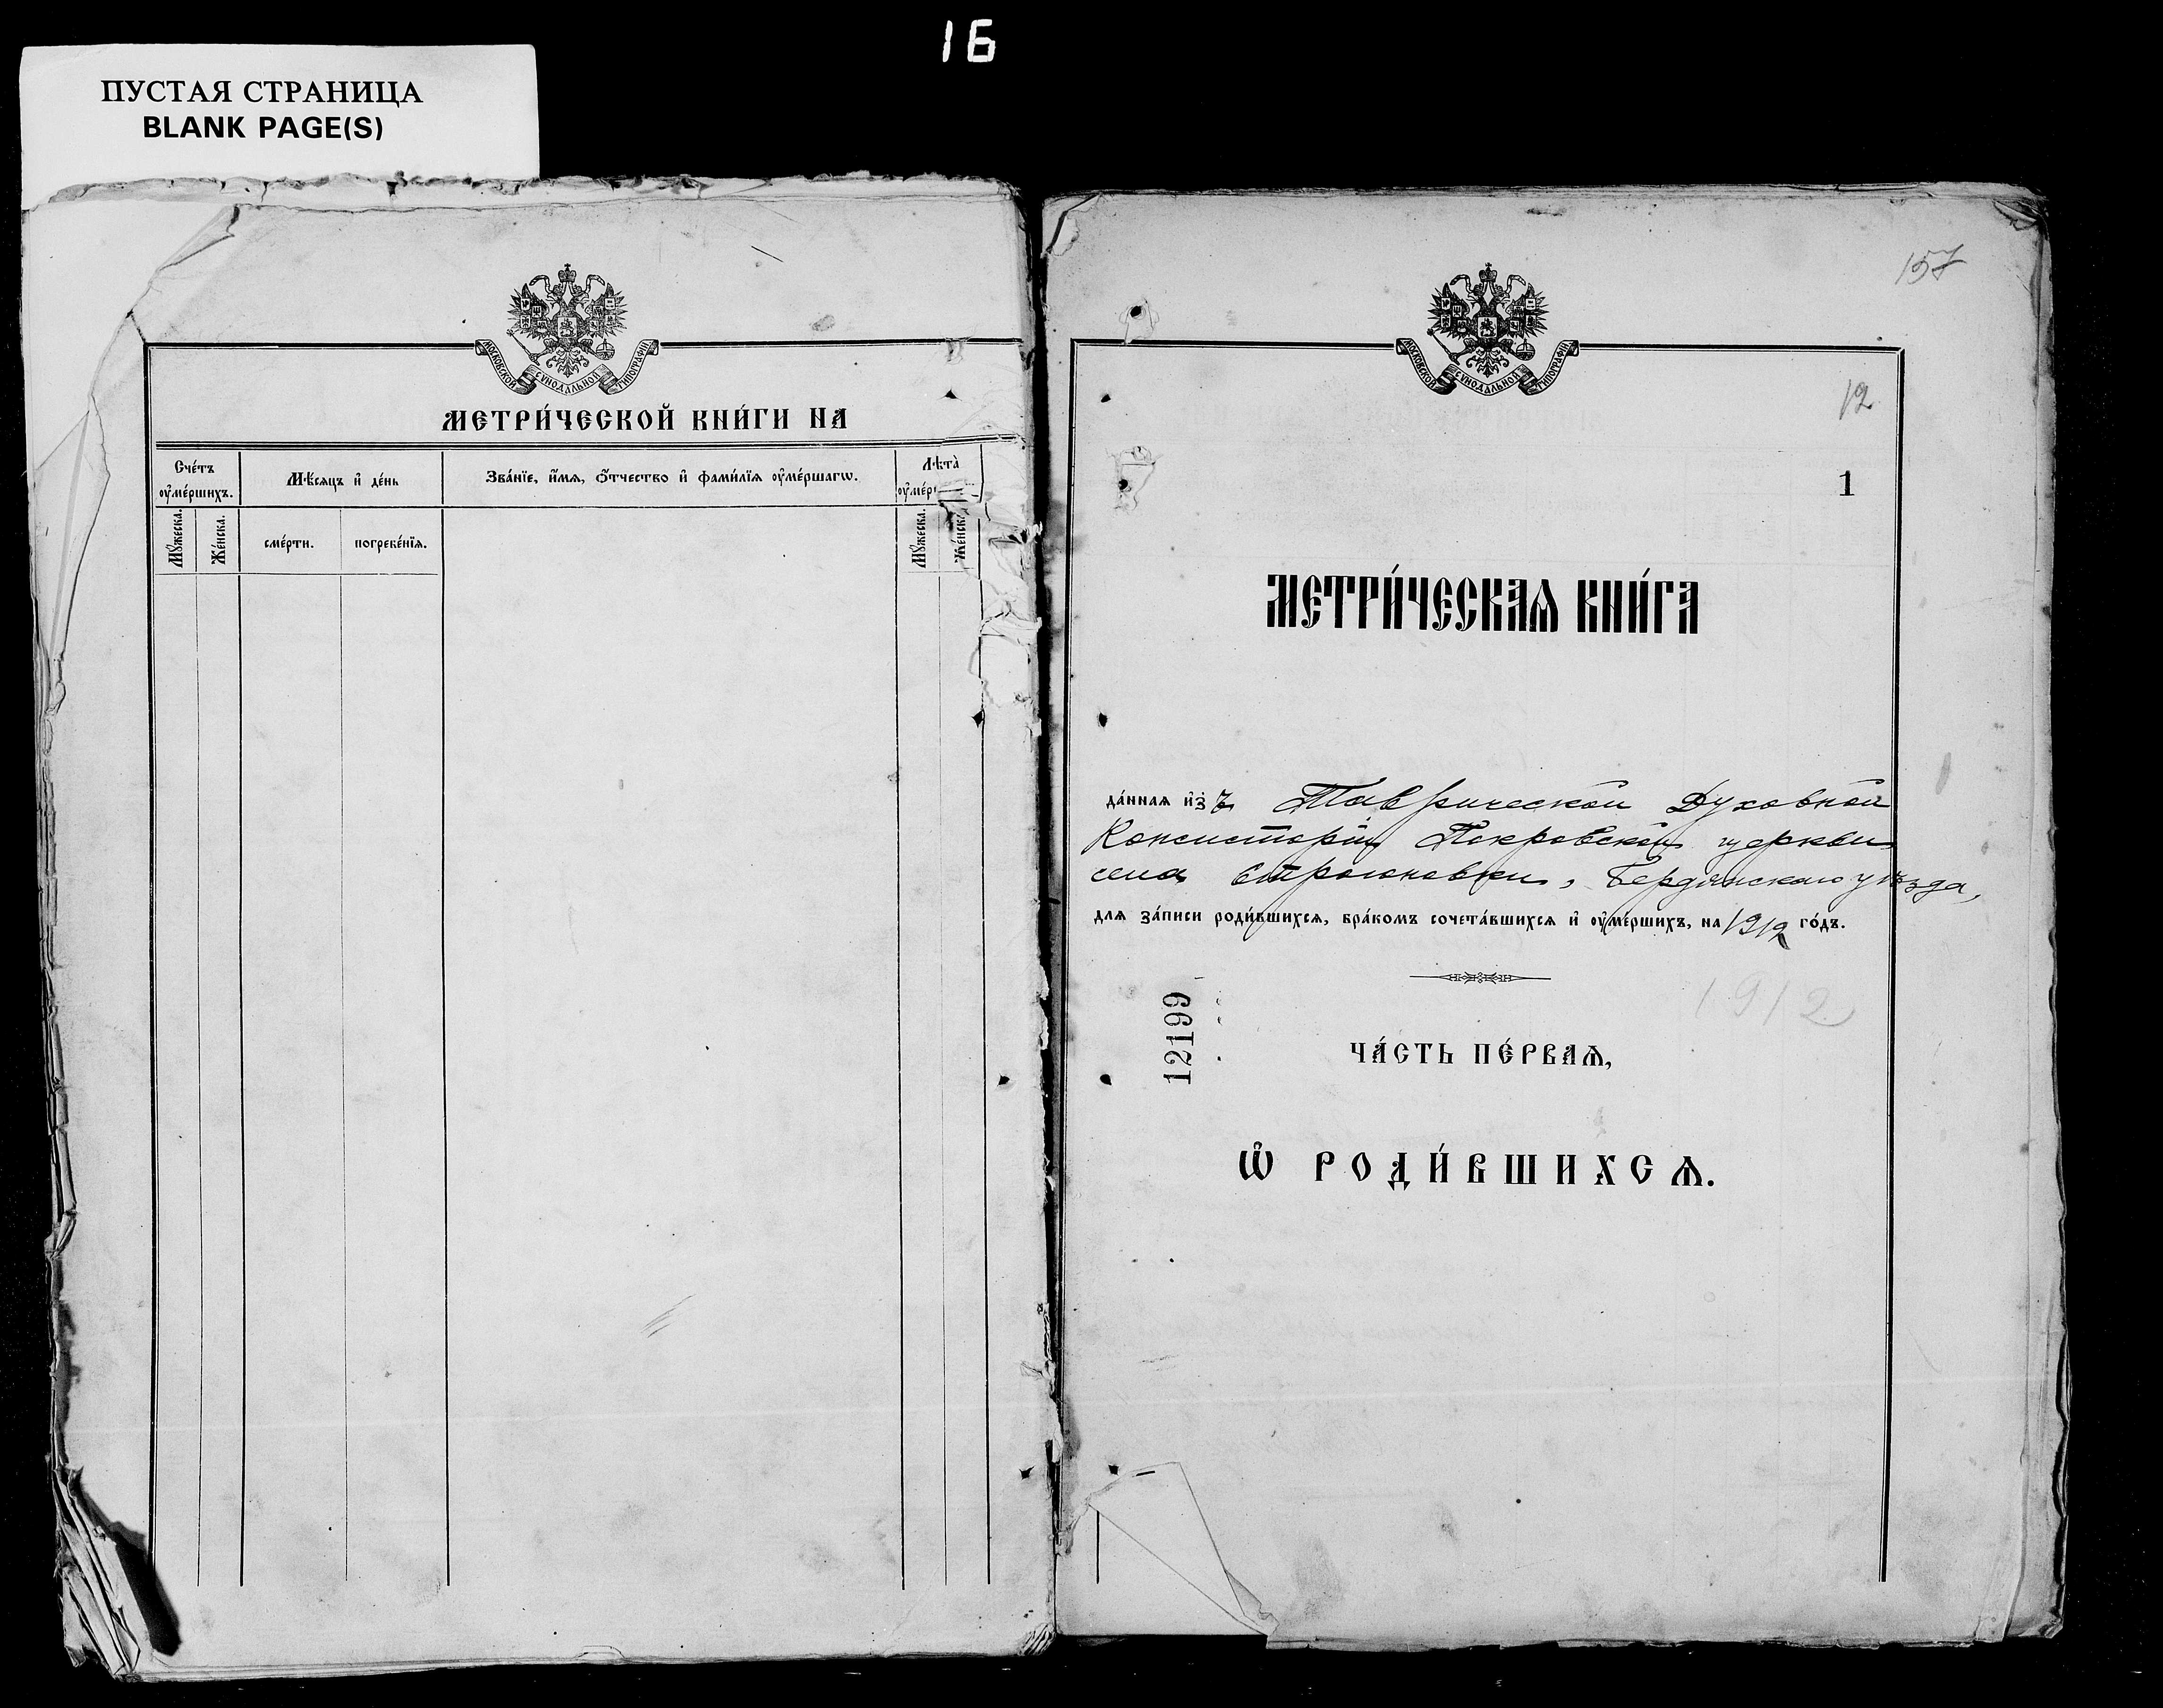 16
ПУСТАЯ СТРАНИЦА
BLANK PAGE(S)
МОСКОВСКОЙ СѴНОДАЛЬНОЙ ТИПОГРАФІИ
МЕТРИ́ЧЕСКОЙ КНИ́ГИ НА
Сче́тъ оу҆ме́ршихъ.
Мѣ́сяцъ и҆ де́нь
Зва́нїе, и҆́мѧ, ѻ҆́тчество и҆ фами́лїѧ оу҆ме́ршагѡ.
Лѣта̀ оу҆ме́р
Мꙋ́жеска.
Же́нска.
сме́рти.
погребе́нїѧ.
Мꙋ́жеска.
Же́нска
157
МОСКОВСКОЙ СѴНОДАЛЬНОЙ ТИПОГРАФІИ
12
1
МЕТРИ́ЧЕСКАѦ КНИ́ГА
да́ннаѧ и҆з̾ъ Таврической Духовной
Консисторіи Покровской церкви
села Строгоновки, Бердянскаго уѣзда,
для за́писи роди́вшихсѧ, бра́комъ сочета́вшихсѧ и҆ оу҆ме́ршихъ, на 1912 го́дъ.
1912
12199
ЧА́СТЬ ПЕ́РВАѦ,
Ѽ РОДИ́ВШИХСѦ.